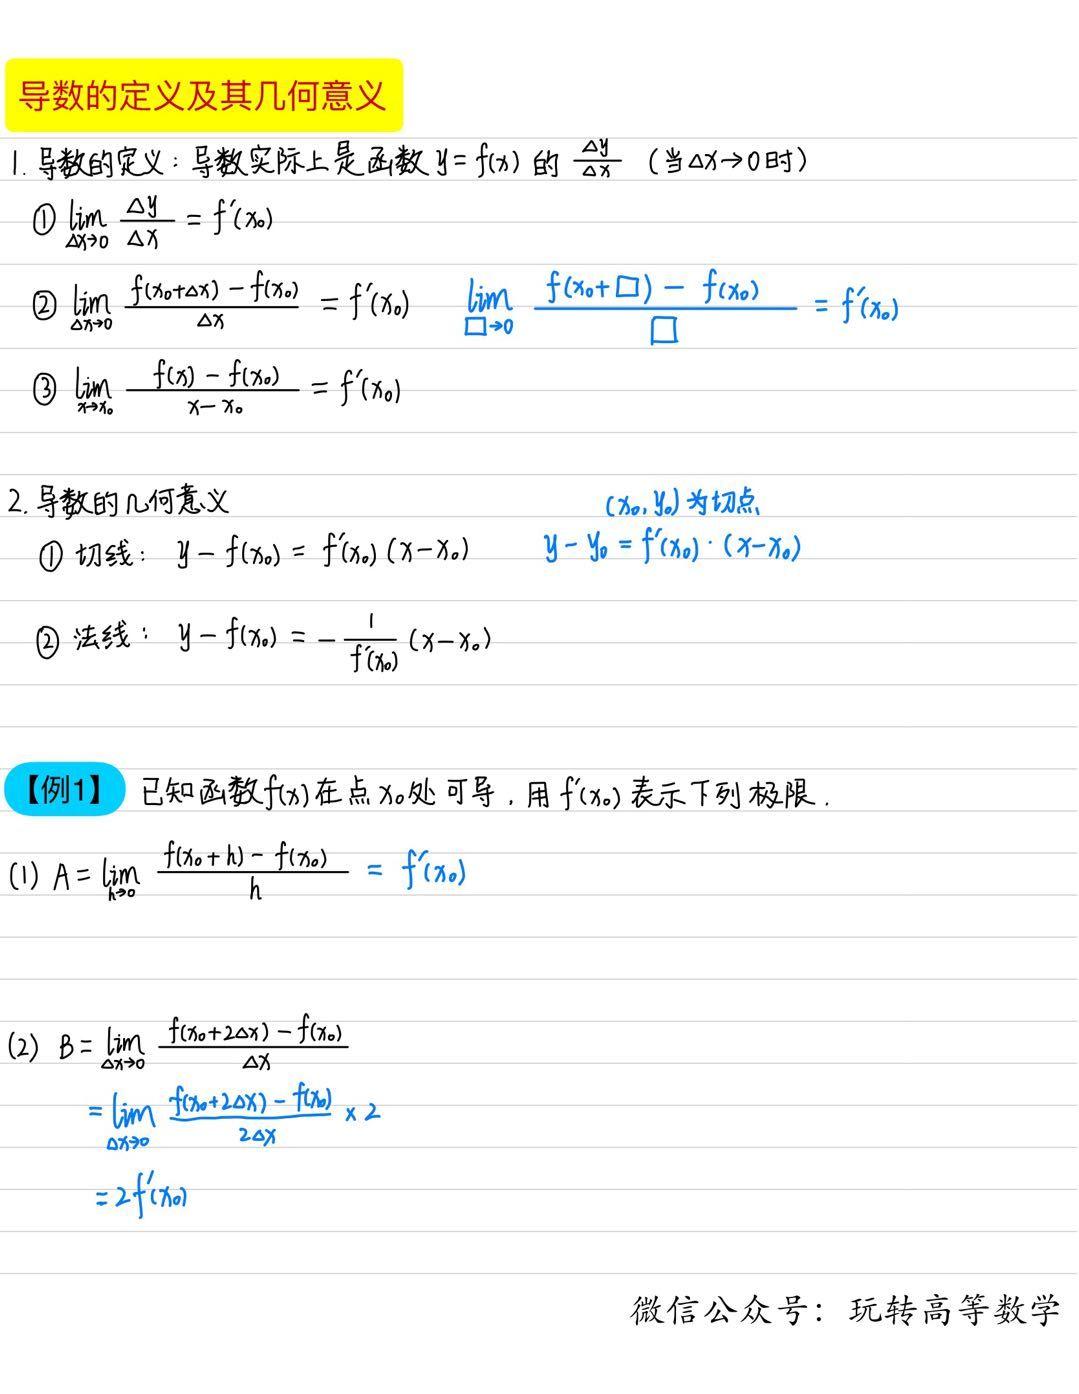 导数的定义及其几何意义
1. 导数的定义：导数实际上是函数 y = f(x) 的 Δy/Δx （当Δx→0时）
① lim_{Δx→0} Δy/Δx = f′(x₀)
② lim_{Δx→0} (f(x₀+Δx) − f(x₀))/Δx = f′(x₀) lim_{□→0} (f(x₀+□) − f(x₀))/□ = f′(x₀)
③ lim_{x→x₀} (f(x) − f(x₀))/(x − x₀) = f′(x₀)
2. 导数的几何意义 (x₀, y₀) 为切点
① 切线： y − f(x₀) = f′(x₀)(x−x₀) y − y₀ = f′(x₀)·(x−x₀)
② 法线： y − f(x₀) = − 1/f′(x₀) (x−x₀)
【例1】 已知函数f(x)在点x₀处可导，用f′(x₀)表示下列极限.
(1) A = lim_{h→0} (f(x₀+h) − f(x₀))/h = f′(x₀)
(2) B = lim_{Δx→0} (f(x₀+2Δx) − f(x₀))/Δx
= lim_{Δx→0} (f(x₀+2Δx) − f(x₀))/2Δx × 2
= 2f′(x₀)
微信公众号：玩转高等数学